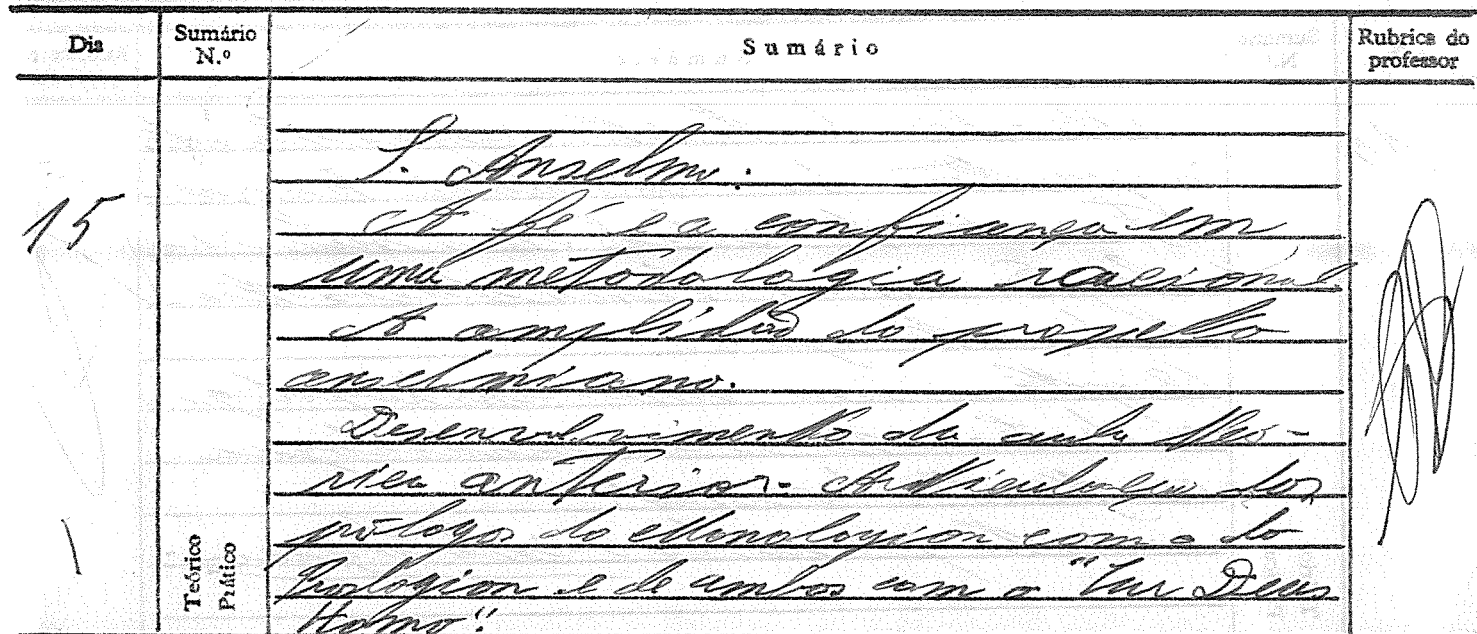 Dia
Sumário N.º
Sumário
Rubrica do professor
S. Anselmo.
15
A fé e a confiança em
uma metodologia racional
A amplidão do projecto
anselmiano.
Desenvolvimento da aula teó-
rica anterior. Articulação dos
prólogos do Monologion com o do
Proslogion e de ambos com o "Cur Deus
Homo".
Teórico
Prático